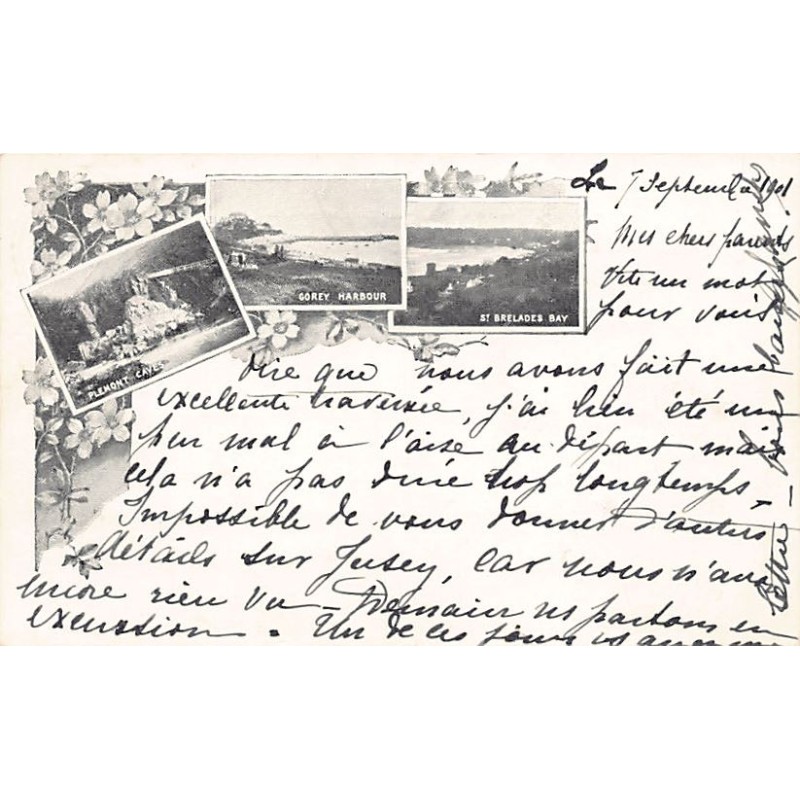 Le 7 Septembre 1901
Mes chers parents
Vite un mot
pour vous
dire que nous avons fait une
excellente traversée, j'ai bien été un
peu mal à l'aise au départ mais
cela n'a pas duré trop longtemps,
Impossible de vous donner d'autres
détails sur Jersey, car nous n'avons
encore rien vu – Demain ns partons en
excursion. Un de ces jours vs aurez une
lettre –
GOREY HARBOUR
ST BRELADES BAY
PLEMONT CAVES